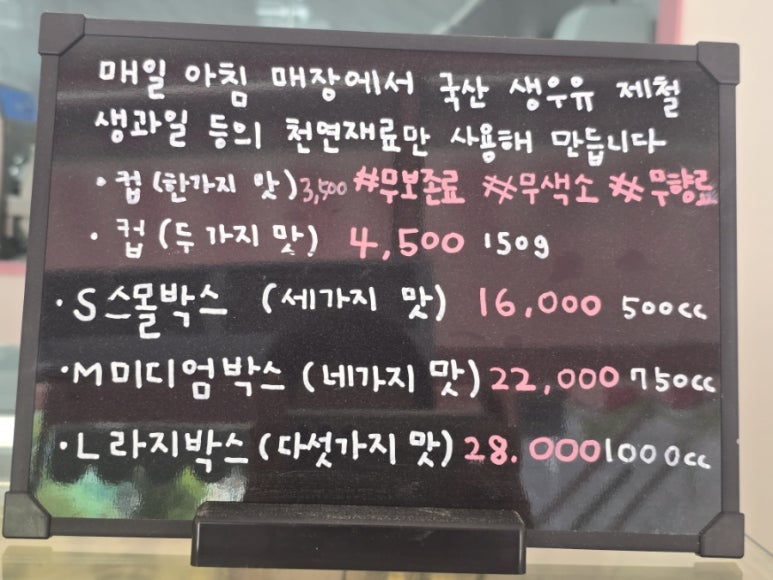 매일 아침 매장에서 국산 생우유 제철
생과일 등의 천연재료만 사용해 만듭니다
· 컵 (한가지 맛) 3,500 #무보존료 #무색소 #무향료
· 컵 (두가지 맛) 4,500 150g
· S 스몰박스 (세가지 맛) 16,000 500cc
· M 미디엄박스 (네가지 맛) 22,000 750cc
· L 라지박스 (다섯가지 맛) 28.000 1000cc